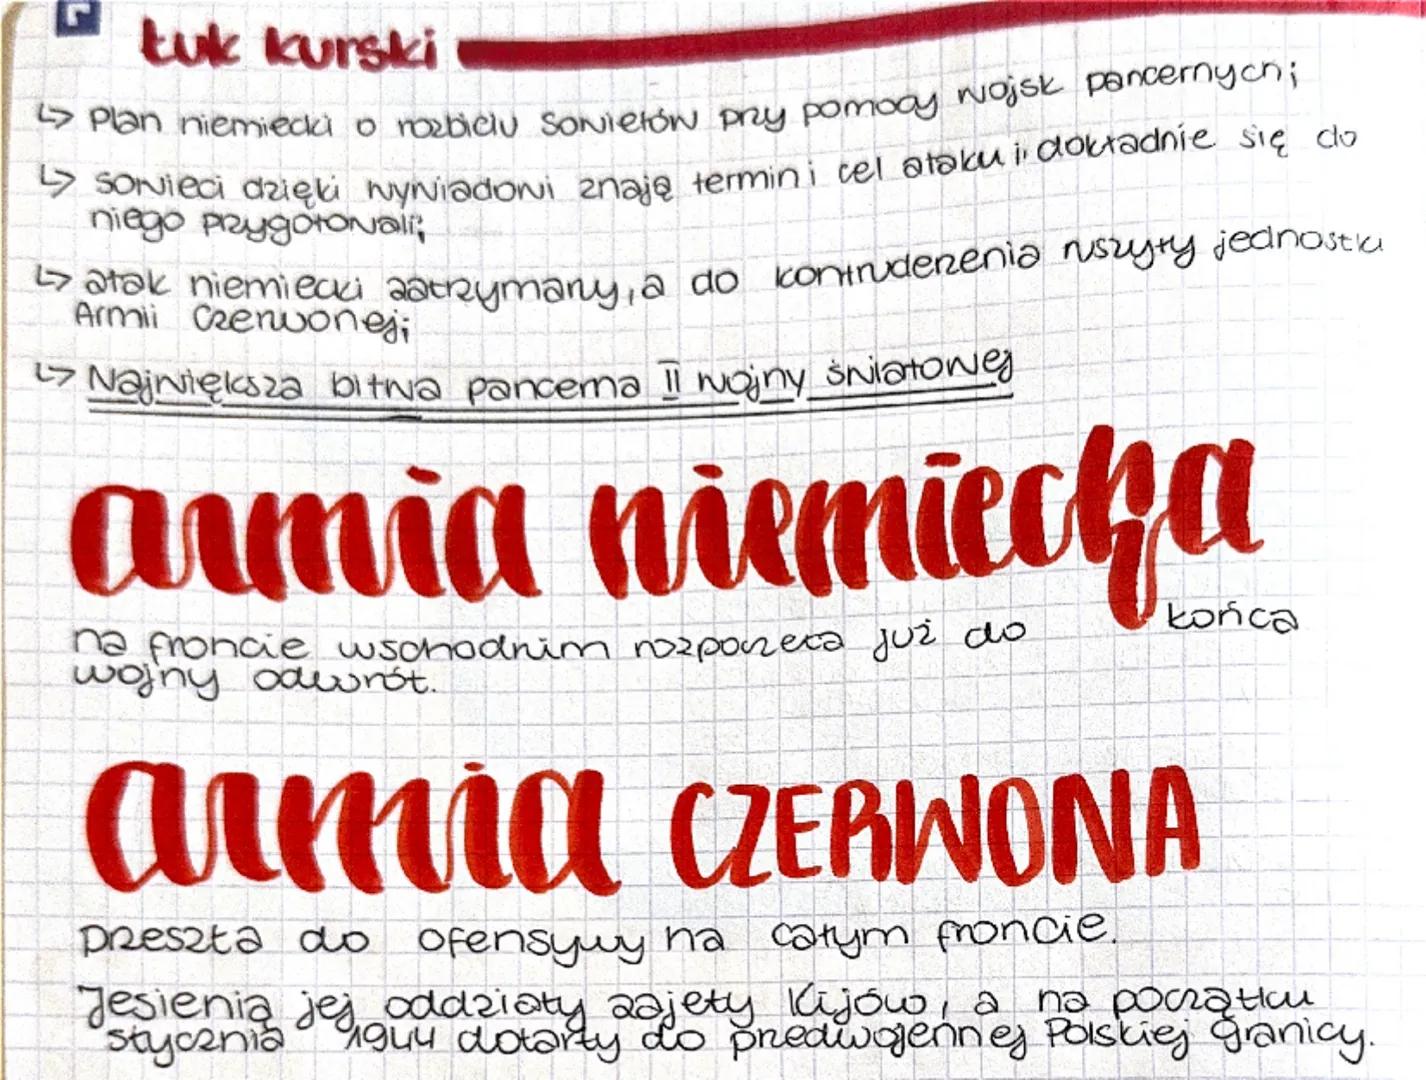 Łuk kurski
↳ Plan niemiecki o rozbiciu Sowietów przy pomocy wojsk pancernych;
↳ sowieci dzięki wywiadowi znają termin i cel ataku i dokładnie się do
niego przygotowali;
↳ atak niemiecki zatrzymany, a do kontruderzenia ruszyły jednostki
Armii Czerwonej;
↳ Największa bitwa pancerna II wojny światowej
armia niemiecka
na froncie wschodnim rozpoczęła już do końca
wojny odwrót.
armia CZERWONA
przeszła do ofensywy na całym froncie.
Jesienią jej oddziały zajęły Kijów, a na początku
stycznia 1944 dotarły do przedwojennej Polskiej granicy.